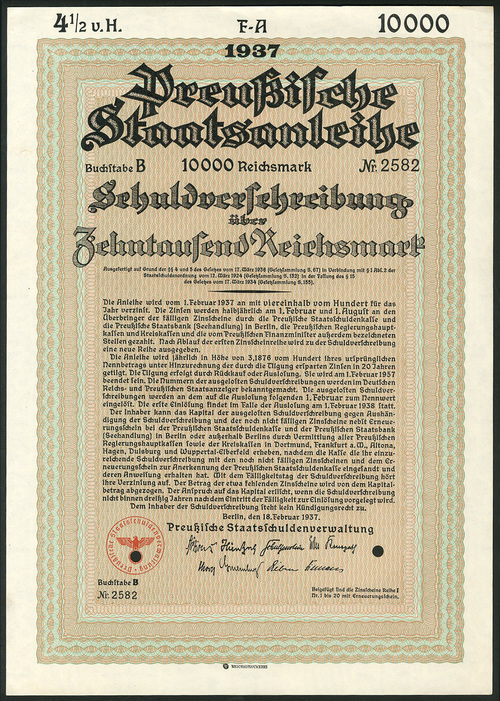 4½ v. H. F-A 10000
1937
Preußische
Staatsanleihe
Buchstabe B 10000 Reichsmark Nr. 2582
Schuldverschreibung
über
Zehntausend Reichsmark
Ausgefertigt auf Grund der §§ 4 und 5 des Gesetzes vom 17. März 1936 (Gesetzsammlung S. 67) in Verbindung mit § 1 Abs. 2 der
Staatsschuldenordnung vom 12. März 1924 (Gesetzsammlung S. 132) in der Fassung des § 15
des Gesetzes vom 17. März 1934 (Gesetzsammlung S. 155).
Die Anleihe wird vom 1. Februar 1937 an mit viereinhalb vom Hundert für das
Jahr verzinst. Die Zinsen werden halbjährlich am 1. Februar und 1. August an den
Überbringer der fälligen Zinsscheine durch die Preußische Staatsschuldenkasse und
die Preußische Staatsbank (Seehandlung) in Berlin, die Preußischen Regierungshaupt-
kassen und Kreiskassen und die vom Preußischen Finanzminister außerdem bezeichneten
Stellen gezahlt. Nach Ablauf der ersten Zinsscheinreihe wird zu der Schuldverschreibung
eine neue Reihe ausgegeben.
Die Anleihe wird jährlich in Höhe von 3,1876 vom Hundert ihres ursprünglichen
Nennbetrages unter Hinzurechnung der durch die Tilgung ersparten Zinsen in 20 Jahren
getilgt. Die Tilgung erfolgt durch Rückkauf oder Auslosung. Sie wird am 1. Februar 1957
beendet sein. Die Nummern der ausgelosten Schuldverschreibungen werden im Deutschen
Reichs- und Preußischen Staatsanzeiger bekanntgemacht. Die ausgelosten Schuldver-
schreibungen werden an dem auf die Auslosung folgenden 1. Februar zum Nennwert
eingelöst. Die erste Einlösung findet im Falle der Auslosung am 1. Februar 1938 statt.
Der Inhaber kann das Kapital der ausgelosten Schuldverschreibung gegen Aushän-
digung der Schuldverschreibung und der noch nicht fälligen Zinsscheine nebst Erneue-
rungsschein bei der Preußischen Staatsschuldenkasse und der Preußischen Staatsbank
(Seehandlung) in Berlin oder außerhalb Berlins durch Vermittlung aller Preußischen
Regierungshauptkassen sowie der Kreiskassen in Dortmund, Frankfurt a. M., Altona,
Hagen, Duisburg und Wuppertal-Elberfeld erheben, nachdem die Kasse die ihr einzu-
reichende Schuldverschreibung mit den noch nicht fälligen Zinsscheinen und dem Er-
neuerungsschein zur Anerkennung der Preußischen Staatsschuldenkasse eingesandt und
deren Anweisung erhalten hat. Mit dem Fälligkeitstag der Schuldverschreibung hört
ihre Verzinsung auf. Der Betrag der etwa fehlenden Zinsscheine wird von dem Kapital-
betrag abgezogen. Der Anspruch auf das Kapital erlischt, wenn die Schuldverschreibung
nicht binnen dreißig Jahren nach dem Eintritt der Fälligkeit zur Einlösung vorgelegt wird.
Dem Inhaber der Schuldverschreibung steht kein Kündigungsrecht zu.
Berlin, den 18. Februar 1937.
Preußische Staatsschuldenverwaltung
Preußische Staatsschuldenverwaltung
Buchstabe B
Nr. 2582
Beigefügt sind die Zinsscheine Reihe I
Nr. 1 bis 20 mit Erneuerungsschein.
REICHSDRUCKEREI